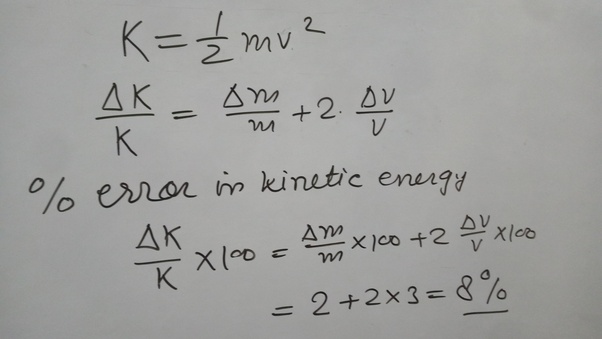 K = 1/2 mv²
ΔK/K = Δm/m + 2. ΔV/V
% error in kinetic energy
ΔK/K × 100 = Δm/m × 100 + 2 ΔV/V × 100
= 2 + 2 × 3 = 8%